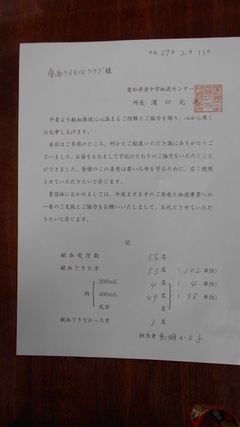 平成 27年 2月 11日
ライオンズクラブ様
愛知県赤十字血液センター
所長 濱口 元
平素より献血推進に心温まるご理解とご協力を賜り、心から厚く
お礼申し上げます。
本日はご多用のところ、何かとご配慮いただき誠にありがとうご
ざいました。お蔭をもちまして下記のとおりのご協力をいただくこと
ができました。皆様のこの善意は尊い人命を守るために、広く使用
させていただきたいと存じます。
貴団体におかれましては、今後ますますのご発展と血液事業への
一層のご支援とご協力をお願いいたしまして、お礼とさせていただ
きたいと存じます。
記
献血受付数 56名
献血できた方 53名 (102単位)
内 200mL 4名 (4単位)
400mL 49名 (98単位)
成分 名
献血できなかった方 3名
担当者